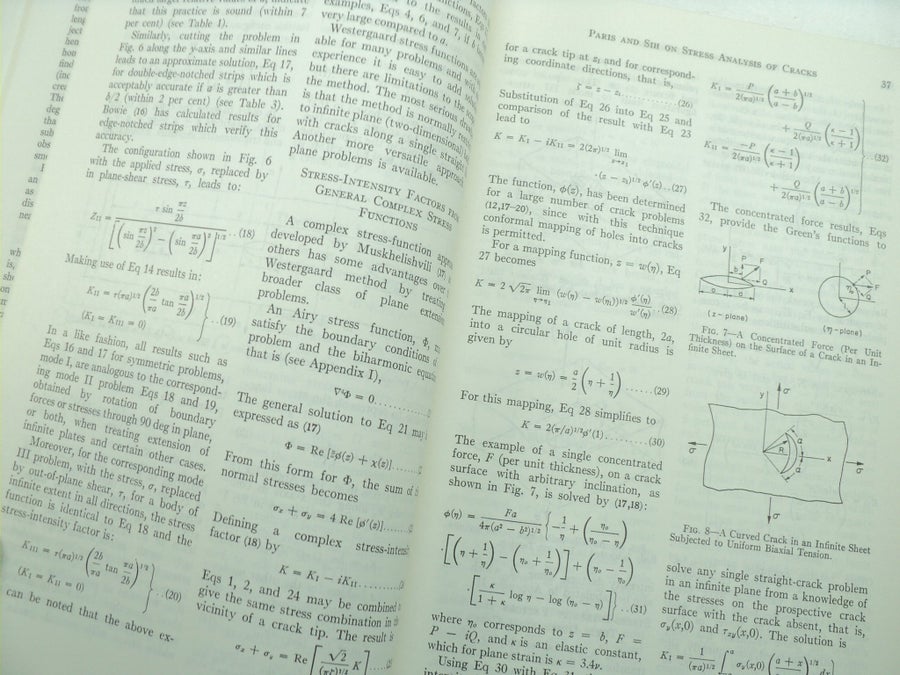 that this practice is sound (within 7
per cent) (see Table 1).
Similarly, cutting the problem in
Fig. 6 along the y-axis and similar lines
leads to an approximate solution, Eq 17,
for double-edge-notched strips which is
acceptably accurate if a is greater than
b/2 (within 2 per cent) (see Table 3).
Bowie (16) has calculated results for
edge-notched strips which verify this
accuracy.
The configuration shown in Fig. 6
with the applied stress, σ, replaced by
in-plane-shear stress, τ, leads to:
Z_II = τ sin πz/2b / [(sin πz/2b)² − (sin πa/2b)²]^1/2 ..(18)
Making use of Eq 14 results in:
K_II = τ(πa)^1/2 (2b/πa tan πa/2b)^1/2
(K_I = K_III = 0) ...(19)
In a like fashion, all results such as
Eqs 16 and 17 for symmetric problems,
mode I, are analogous to the correspond-
ing mode II problem Eqs 18 and 19,
obtained by rotation of boundary
forces or stresses through 90 deg in plane,
or both, when treating extension of
infinite plates and certain other cases.
Moreover, for the corresponding mode
III problem, with the stress, σ, replaced
by out-of-plane shear, τ, for a body of
infinite extent in all directions, the stress
function is identical to Eq 18 and the
stress-intensity factor is:
K_III = τ(πa)^1/2 (2b/πa tan πa/2b)^1/2
(K_I = K_II = 0) ..(20)
can be noted that the above ex-
examples, Eqs 4, 6, and 7, if b
very large compared to a.
Westergaard stress functions are
able for many problems and with
experience it is easy to add
but there are limitations to the
the method. The most serious
is that the method is normally
to infinite plane (two-dimensional)
with cracks along a single straight
Another more versatile approach
plane problems is available.
STRESS-INTENSITY FACTORS FROM
GENERAL COMPLEX STRESS
FUNCTIONS
A complex stress-function
developed by Muskhelishvili (17)
others has some advantages over
Westergaard method by treating
broader class of plane extension
problems.
An Airy stress function, Φ,
satisfy the boundary conditions of
problem and the biharmonic equation
that is (see Appendix I),
∇⁴Φ = 0
The general solution to Eq 21 may
expressed as (17)
Φ = Re [z̄φ(z) + χ(z)]
From this form for Φ, the sum of
normal stresses becomes
σx + σy = 4 Re [φ′(z)]
Defining a complex stress-intensity
factor (18) by
K = K_I − iK_II
Eqs 1, 2, and 24 may be combined
give the same stress combination in
vicinity of a crack tip. The result is
σx + σy = Re [√2/(πζ)^1/2 K]
PARIS AND SIH ON STRESS ANALYSIS OF CRACKS
37
for a crack tip at z₁ and for correspond-
ing coordinate directions, that is,
ζ = z − z₁ (26)
Substitution of Eq 26 into Eq 25 and
comparison of the result with Eq 23
lead to
K = K_I − iK_II = 2(2π)^1/2 lim z→z₁
·(z − z₁)^1/2 φ′(z)..(27)
The function, φ(z), has been determined
for a large number of crack problems
(12,17–20), since with this technique
conformal mapping of holes into cracks
is permitted.
For a mapping function, z = w(η), Eq
27 becomes
K = 2 √2π lim η→η₁ (w(η) − w(η₁))^1/2 φ′(η)/w′(η) ..(28)
The mapping of a crack of length, 2a,
into a circular hole of unit radius is
given by
z = w(η) = a/2 (η + 1/η) ......(29)
For this mapping, Eq 28 simplifies to
K = 2(π/a)^1/2 φ′(1).........(30)
The example of a single concentrated
force, F (per unit thickness), on a crack
surface with arbitrary inclination, as
shown in Fig. 7, is solved by (17,18):
φ(η) = Fa/4π(a² − b²)^1/2 {−1/η + (η₀/η₀ − η)
·[(η + 1/η) − (η₀ + 1/η₀)] + (η₀ − 1/η₀)
·[κ/1 + κ log η − log (η₀ − η)]}..(31)
where η₀ corresponds to z = b, F =
P − iQ, and κ is an elastic constant,
which for plane strain is κ = 3.4ν.
Using Eq 30 with Eq 31
K_I = P/2(πa)^1/2 (a + b/a − b)^1/2
+ Q/2(πa)^1/2 (κ − 1/κ + 1)
K_II = −P/2(πa)^1/2 (κ − 1/κ + 1)
+ Q/2(πa)^1/2 (a + b/a − b)^1/2
..(32)
The concentrated force results, Eqs
32, provide the Green's functions to
y
P
F
b
Q
x
a
a
(z-plane)
P
F
η₀
Q
(η-plane)
FIG. 7—A Concentrated Force (Per Unit
Thickness) on the Surface of a Crack in an In-
finite Sheet.
σ
y
R
α
α
x
σ
σ
σ
FIG. 8—A Curved Crack in an Infinite Sheet
Subjected to Uniform Biaxial Tension.
solve any single straight-crack problem
in an infinite plane from a knowledge of
the stresses on the prospective crack
surface with the crack absent, that is,
σy(x,0) and τxy(x,0). The solution is
K_I = 1/(πa)^1/2 ∫ σy(x,0) (a + x